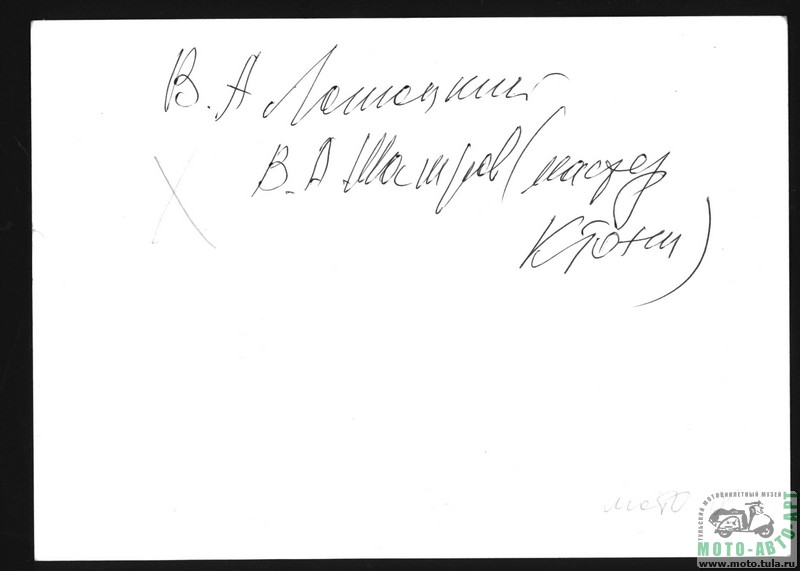 В. А Лотоцкий
В. А Шатров (мастер
мото
ТУЛЬСКИЙ МОТОЦИКЛЕТНЫЙ МУЗЕЙ
МОТО-АВТО-АРТ
www.moto.tula.ru